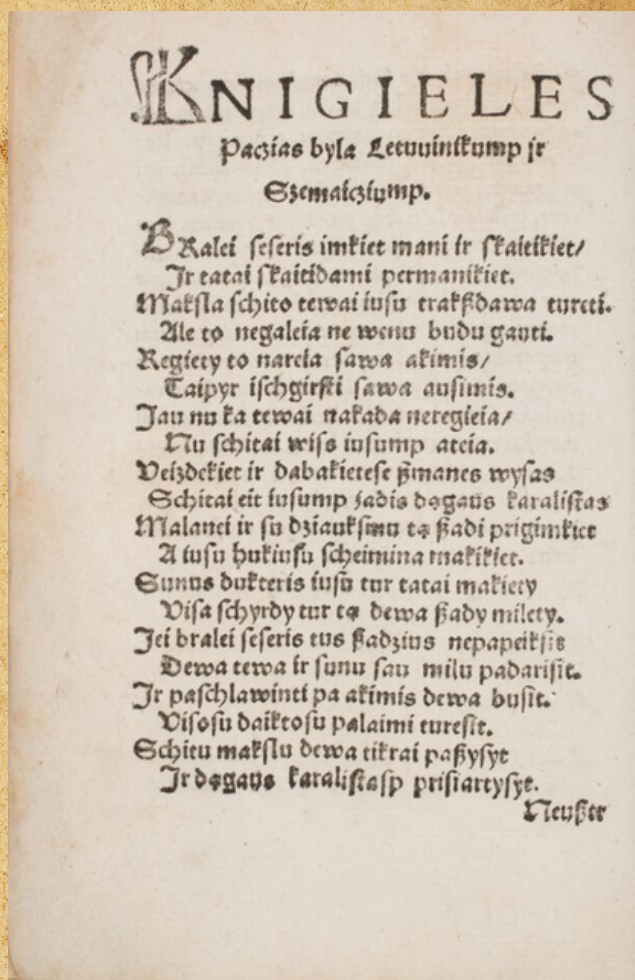 KNIGIELES
Paczias byla Letuuinikump ir
Szemaicziump.
BRalei seseris imkiet mani ir skaitikiet/
Ir tatai skaitidami permanikiet.
Maksla schito tewai iusu trakszdawa tureti.
Ale to negaleia ne wenu budu gauti.
Regiety to nareia sawa akimis/
Taipyr ischgirsti sawa ausimis.
Jau nu ka tewai nakada neregieia/
Nu schitai wiss iusump ateia.
Veizdekiet ir dabakietese szmanes wysas
Schitai eit iusump szadis dągaus karalistas
Malanei ir su dziauksmu tą szadi prigimkiet
A iusu hukiusu scheimina makikiet.
Sunus dukteris iusu tur tatai makiety
Visa schyrdy tur tą dewa szady milety.
Jei bralei seseris tus szadzius nepapeiksit
Dewa tewa ir sunu sau milu padarisit.
Ir paschlawinti pa akimis dewa busit.
Visosu daiktosu palaimi turesit.
Schitu makslu dewa tikrai paszysyt
Ir dągaus karalistasp prisiartysyt.
Neuszter